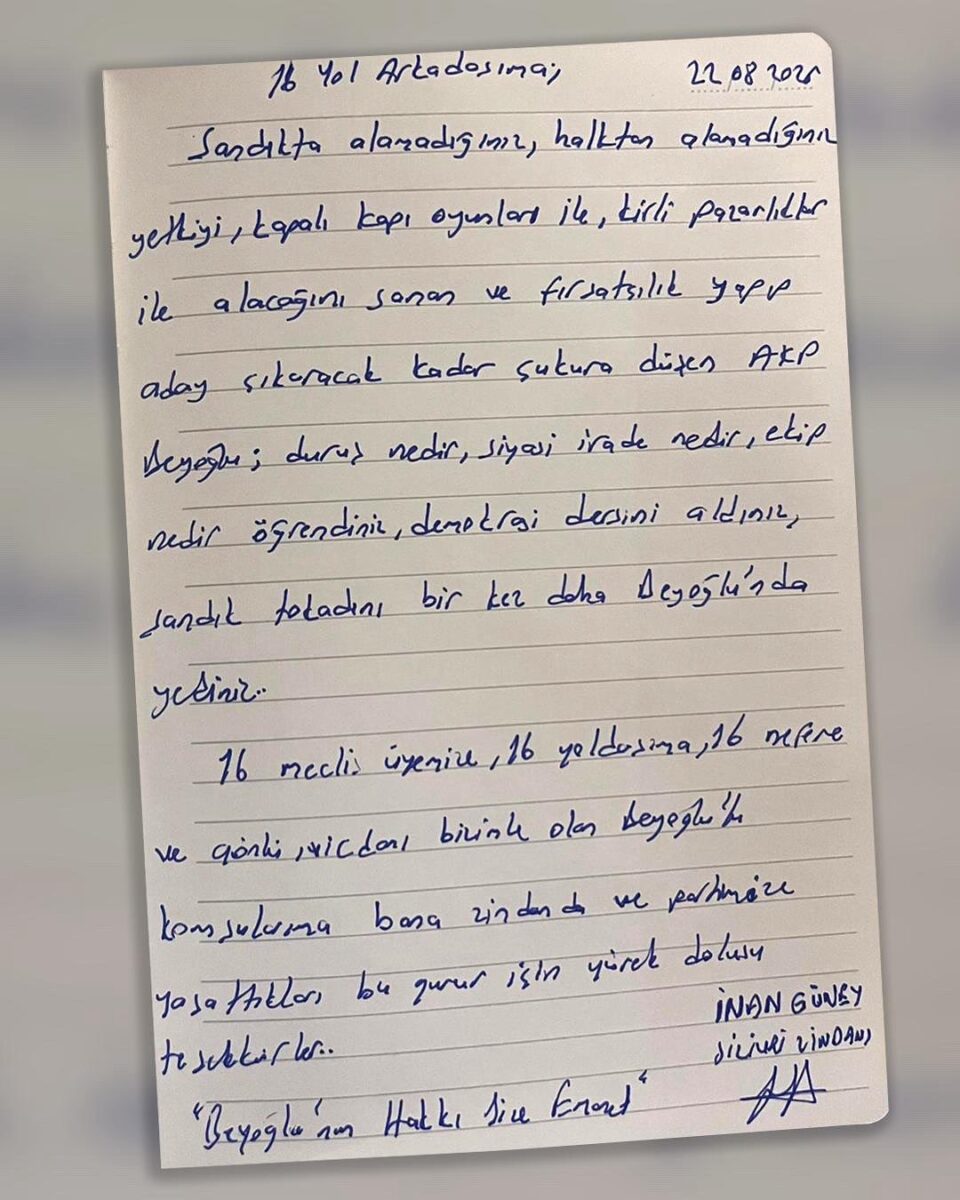 16 Yol Arkadaşıma; 22.08.2025
Sandıkta alamadığınız, halktan alamadığınız
yetkiyi, kapalı kapı oyunları ile, kirli pazarlıklar
ile alacağını sanan ve fırsatçılık yapıp
aday çıkaracak kadar çukura düşen AKP
Beyoğlu; duruş nedir, siyasi irade nedir, ekip
nedir öğrendiniz, demokrasi dersini aldınız,
sandık tokadını bir kez daha Beyoğlu'nda
yediniz..
16 meclis üyemize, 16 yoldaşıma, 16 nefere
ve gönlü, vicdanı bizimle olan Beyoğlu'lu
komşularıma bana zindanda ve partimize
yaşattıkları bu gurur için yürek dolusu
teşekkürler..
İNAN GÜNEY
SİLİVRİ ZİNDANI
"Beyoğlu'nun Hakkı Size Emanet"